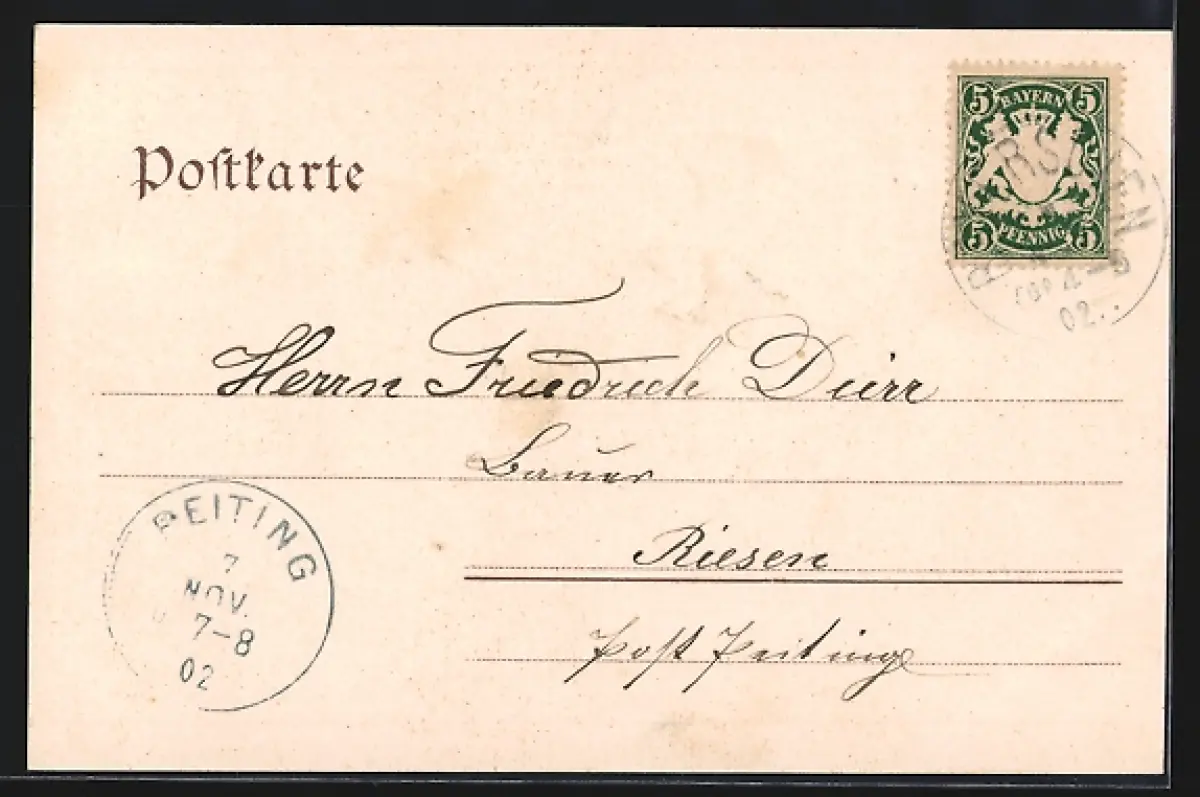 Postkarte
5 BAYERN 5
5 PFENNIG 5
02
Herrn Friedrich Dürr
Bauer
Riesen
Post Peiting
PEITING
7
NOV.
7-8
02